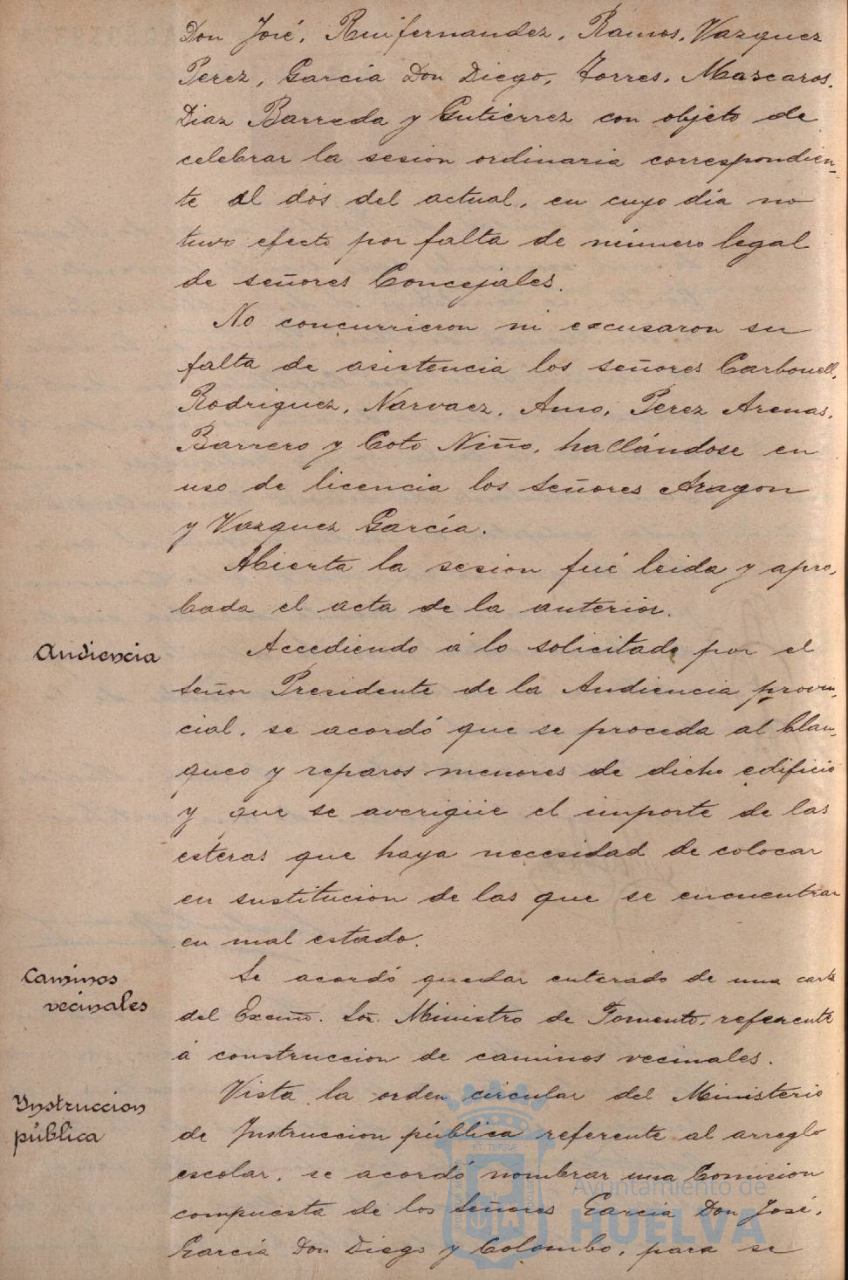 Don José, Ruifernandez, Ramos, Vazquez
Perez, García Don Diego, Torres, Mascaros,
Diaz Barreda y Gutierrez con objeto de
celebrar la sesion ordinaria correspondien-
te al dos del actual, en cuyo día no
tuvo efecto por falta de número legal
de señores Concejales.
No concurrieron ni excusaron su
falta de asistencia los señores Carbonell,
Rodriguez, Narvaez, Amo, Perez Arenas,
Barrero y Coto Niño, hallándose en
uso de licencia los señores Aragon
y Vazquez García.
Abierta la sesion fué leida y apro-
bada el acta de la anterior.
Audiencia
Accediendo á lo solicitado por el
señor Presidente de la Audiencia provin-
cial, se acordó que se proceda al blan-
queo y reparos menores de dicho edificio
y que se averigüe el importe de las
esteras que haya necesidad de colocar
en sustitucion de las que se encuentran
en mal estado.
Caminos
vecinales
Se acordó quedar enterado de una carta
del Excmo. Sor. Ministro de Fomento, referente
á construccion de caminos vecinales.
Instruccion
pública
Vista la orden circular del Ministerio
de Instruccion pública referente al arreglo
escolar, se acordó nombrar una Comision
compuesta de los Señores García Don José,
García Don Diego y Colombo, para se
Ayuntamiento de
HUELVA